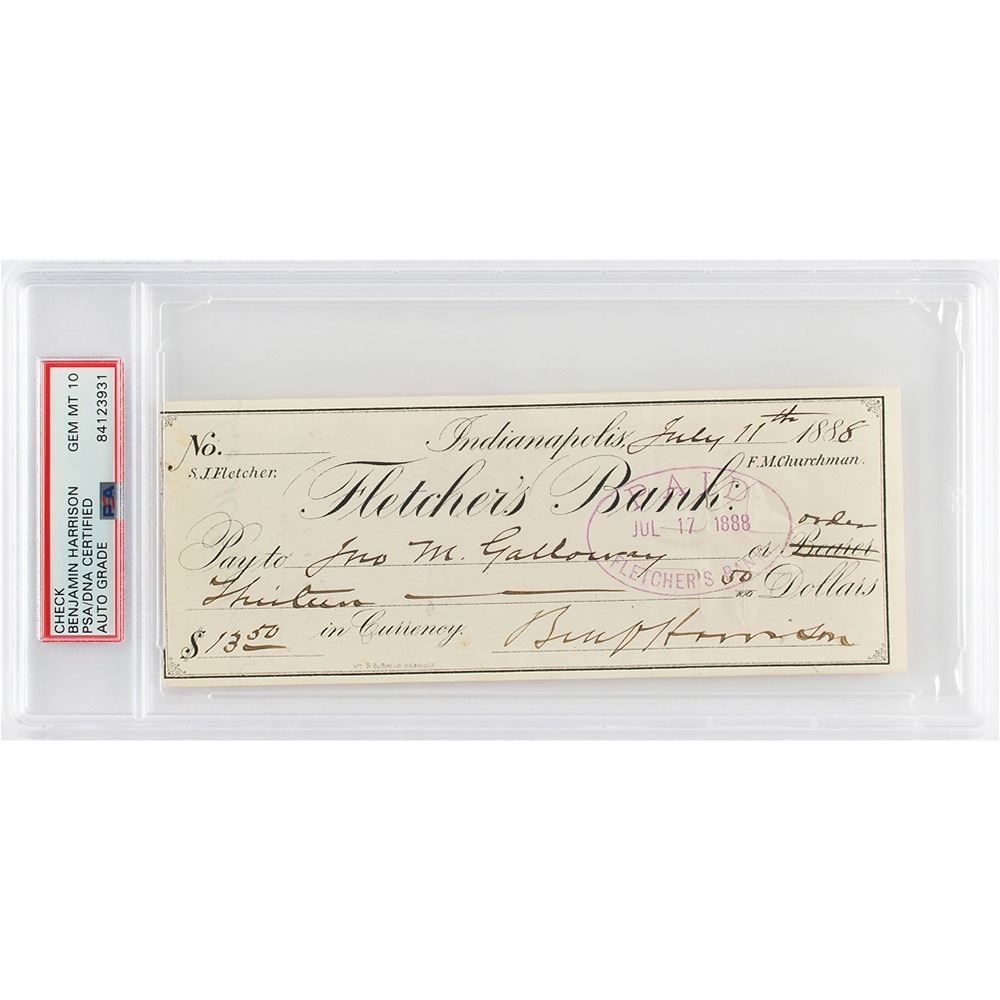 CHECK
BENJAMIN HARRISON
PSA/DNA CERTIFIED
AUTO GRADE
GEM MT 10
84123931
PSA
No.
Indianapolis, July 11th 1888
S.J.Fletcher.
F.M.Churchman.
Fletcher's Bank:
PAID
JUL 17 1888
FLETCHER'S BANK
order
Pay to Jno M. Galloway or Bearer
Thirteen 50/100 Dollars
$ 13 50 in Currency.
Benj Harrison